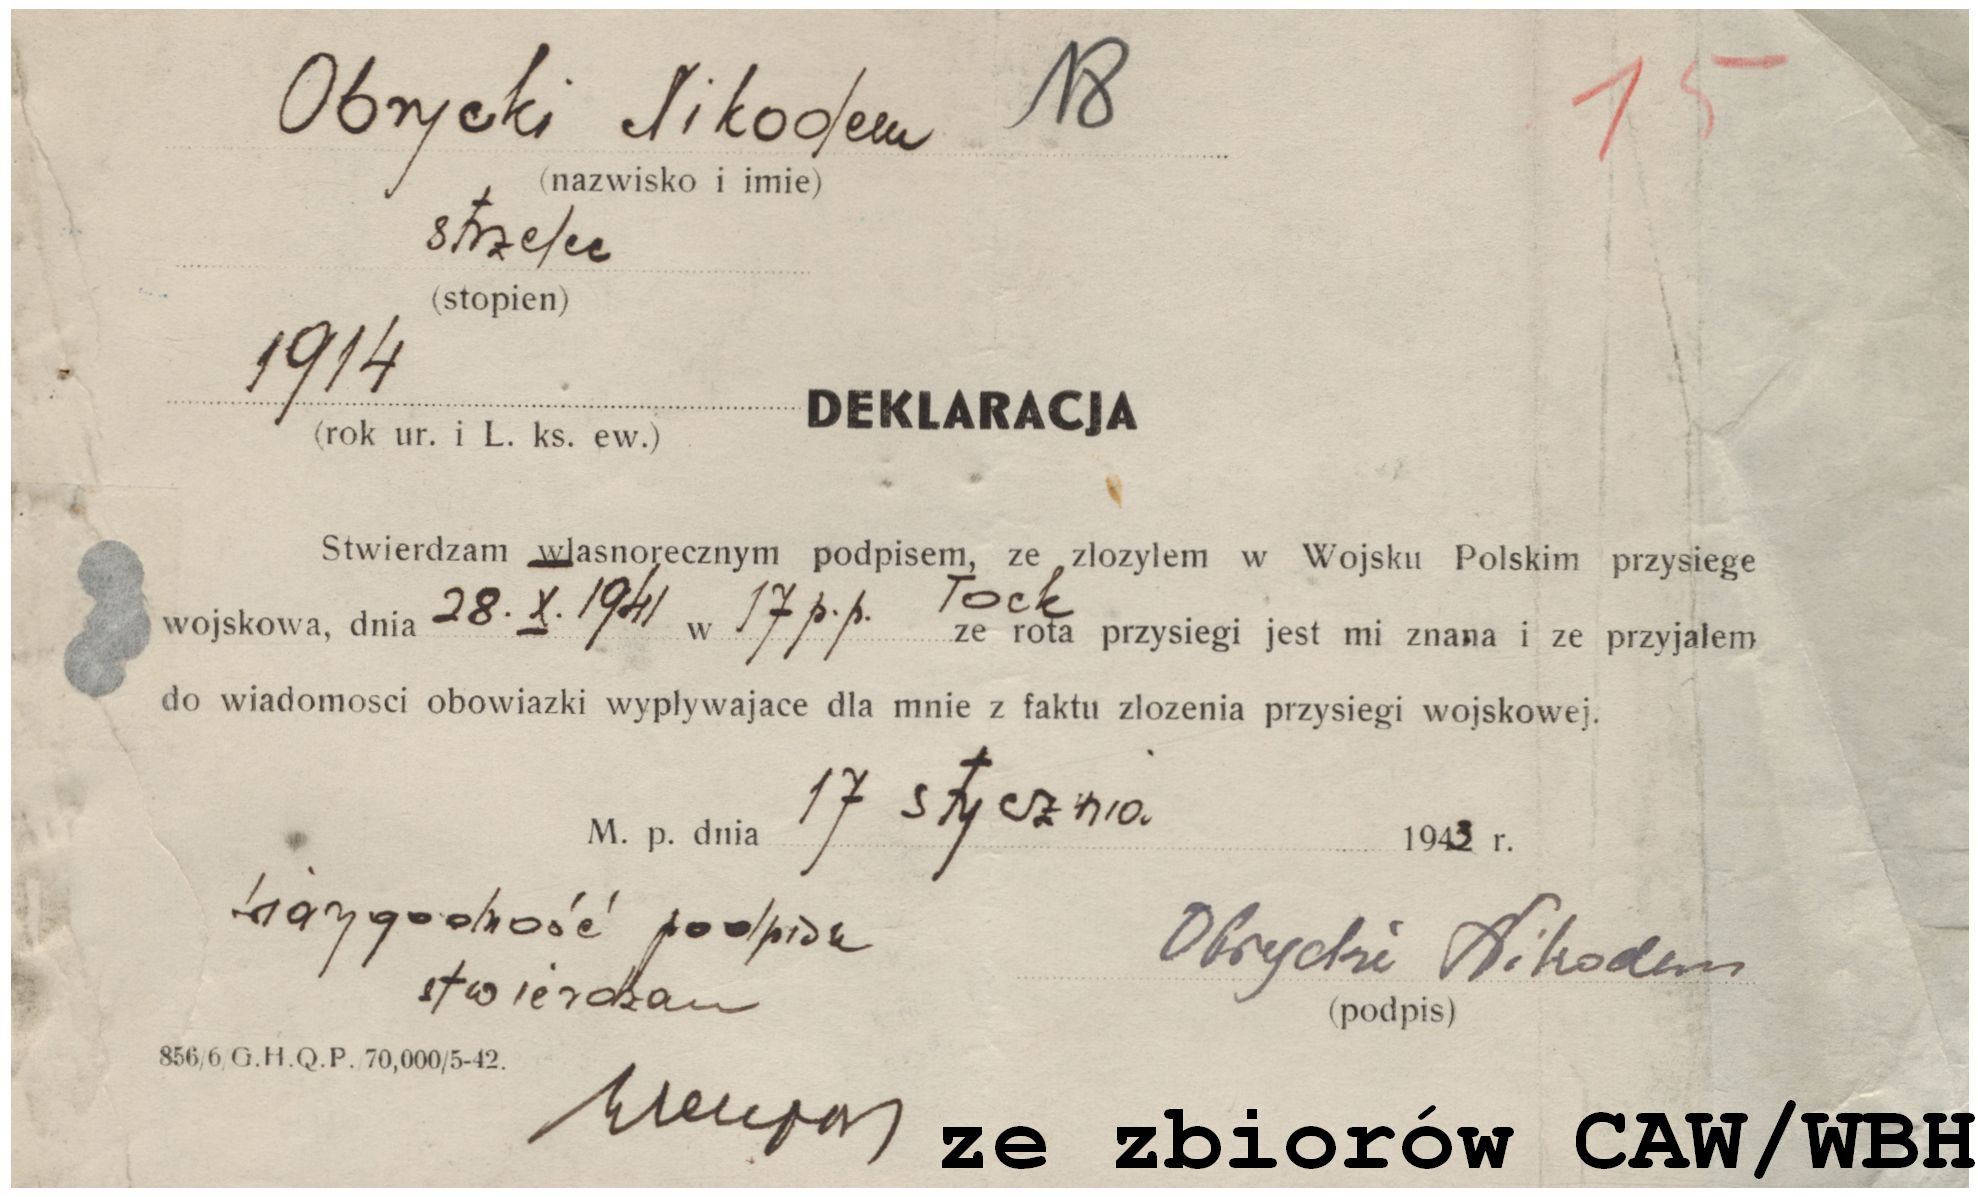 Obrycki Nikodem
15
(nazwisko i imie)
strzelec
(stopien)
1914
(rok ur. i L. ks. ew.)
DEKLARACJA
Stwierdzam wlasnorecznym podpisem, ze zlozylem w Wojsku Polskim przysiege
wojskowa, dnia 28. X. 1941 w 17 p.p. Tock ze rota przysiegi jest mi znana i ze przyjalem
do wiadomosci obowiazki wyplywajace dla mnie z faktu zlozenia przysiegi wojskowej.
M. p. dnia 17 stycznia 1943 r.
wiarygodność podpisu
stwierdzam
Obrycki Nikodem
(podpis)
856/6/G.H.Q.P./70,000/5-42.
ze zbiorów CAW/WBH